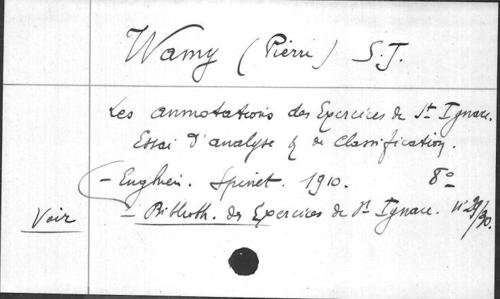 Wamy (Pierre) S.J.
Les annotations des Exercices de St Ignace.
Essai d'analyse & de classification.
- Enghien. Spinet. 1910. 8°
Voir = Biblioth. des Exercices de St Ignace. n° 29/30.